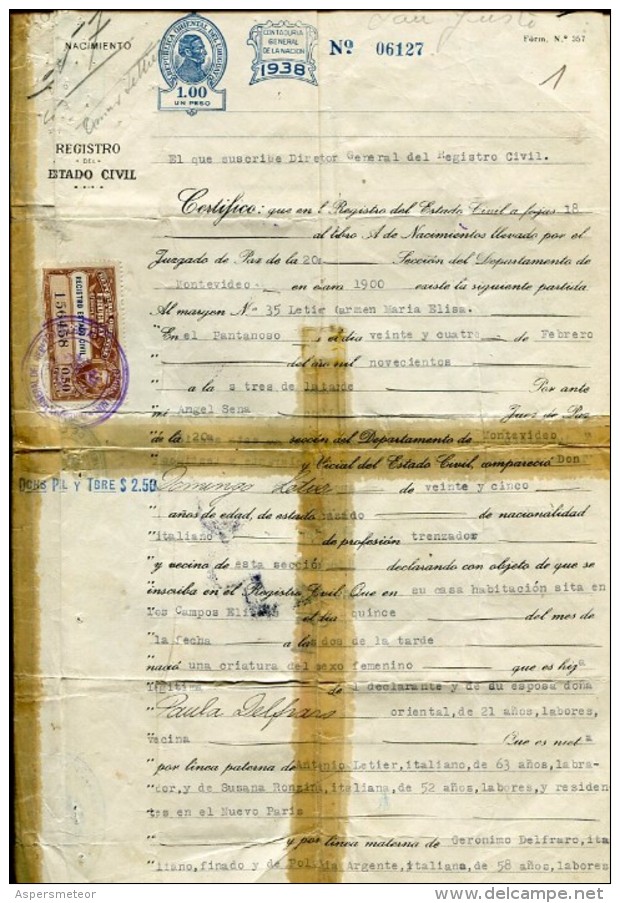 San Justo
NACIMIENTO
REPUBLICA ORIENTAL DEL URUGUAY
1.00
UN PESO
CONTADURIA
GENERAL
DE LA NACION
1938
Nº 06127
Fórm. N.º 357
1
REGISTRO
DEL
ESTADO CIVIL
El que suscribe Diretor General del Registro Civil.
Certifico: que en el Registro del Estado Civil a fojas 18
al libro A de Nacimientos llevado por el
Juzgado de Paz de la 20a Sección del Departamento de
Montevideo en 1900 existe la siguiente partida
Al margen Nº 35 Letier Carmen Maria Elisa.
"En el Pantanoso el día veinte y cuatro de Febrero
" del año mil novecientos
" a la s tres de la tarde Por ante
"mi Angel Sena Juez de Paz
"de la 20a sección del Departamento de Montevideo
" y Oficial del Estado Civil, compareció Don
"Domingo Letier de veinte y cinco
" años de edad, de estado casado de nacionalidad
"italiano de profesión trenzador
" y vecino de ésta sección declarando con objeto de que se
inscriba en el Registro Civil Que en su casa habitación sita en
los Campos Eliseos el día quince del mes de
"la fecha a las dos de la tarde
"nació una criatura del sexo femenino que es hija
legítima del declarante y de su esposa doña
"Paula Delfraro oriental, de 21 años, labores,
vecina Que es nieta
"por línea paterna de Antonio Letier, italiano, de 63 años, labra-
"dor, y de Susana italiana, de 52 años, labores, y residen
"tes en el Nuevo Paris
" y por línea materna de Gerónimo Delfraro, ita
"liano, finado y de Argente, italiana, de 58 años, labores
REGISTRO ESTADO CIVIL
156458
0.50
DCHS PIL Y TBRE $ 2.50
Aspersmeteor
www.delcampe.net